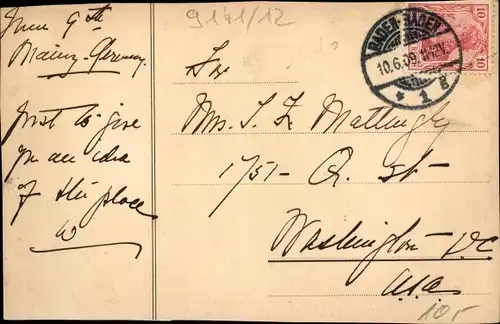 9141/12
June 9th
Mainz, Germany
Just to give
you an idea
of this place
W
For
Mrs. S. Z. Mattingly
1751 - Q. St -
Washington - DC
USA
BADEN-BADEN
10.6.09. 11-12V.
* 1 B
10
10
10.-